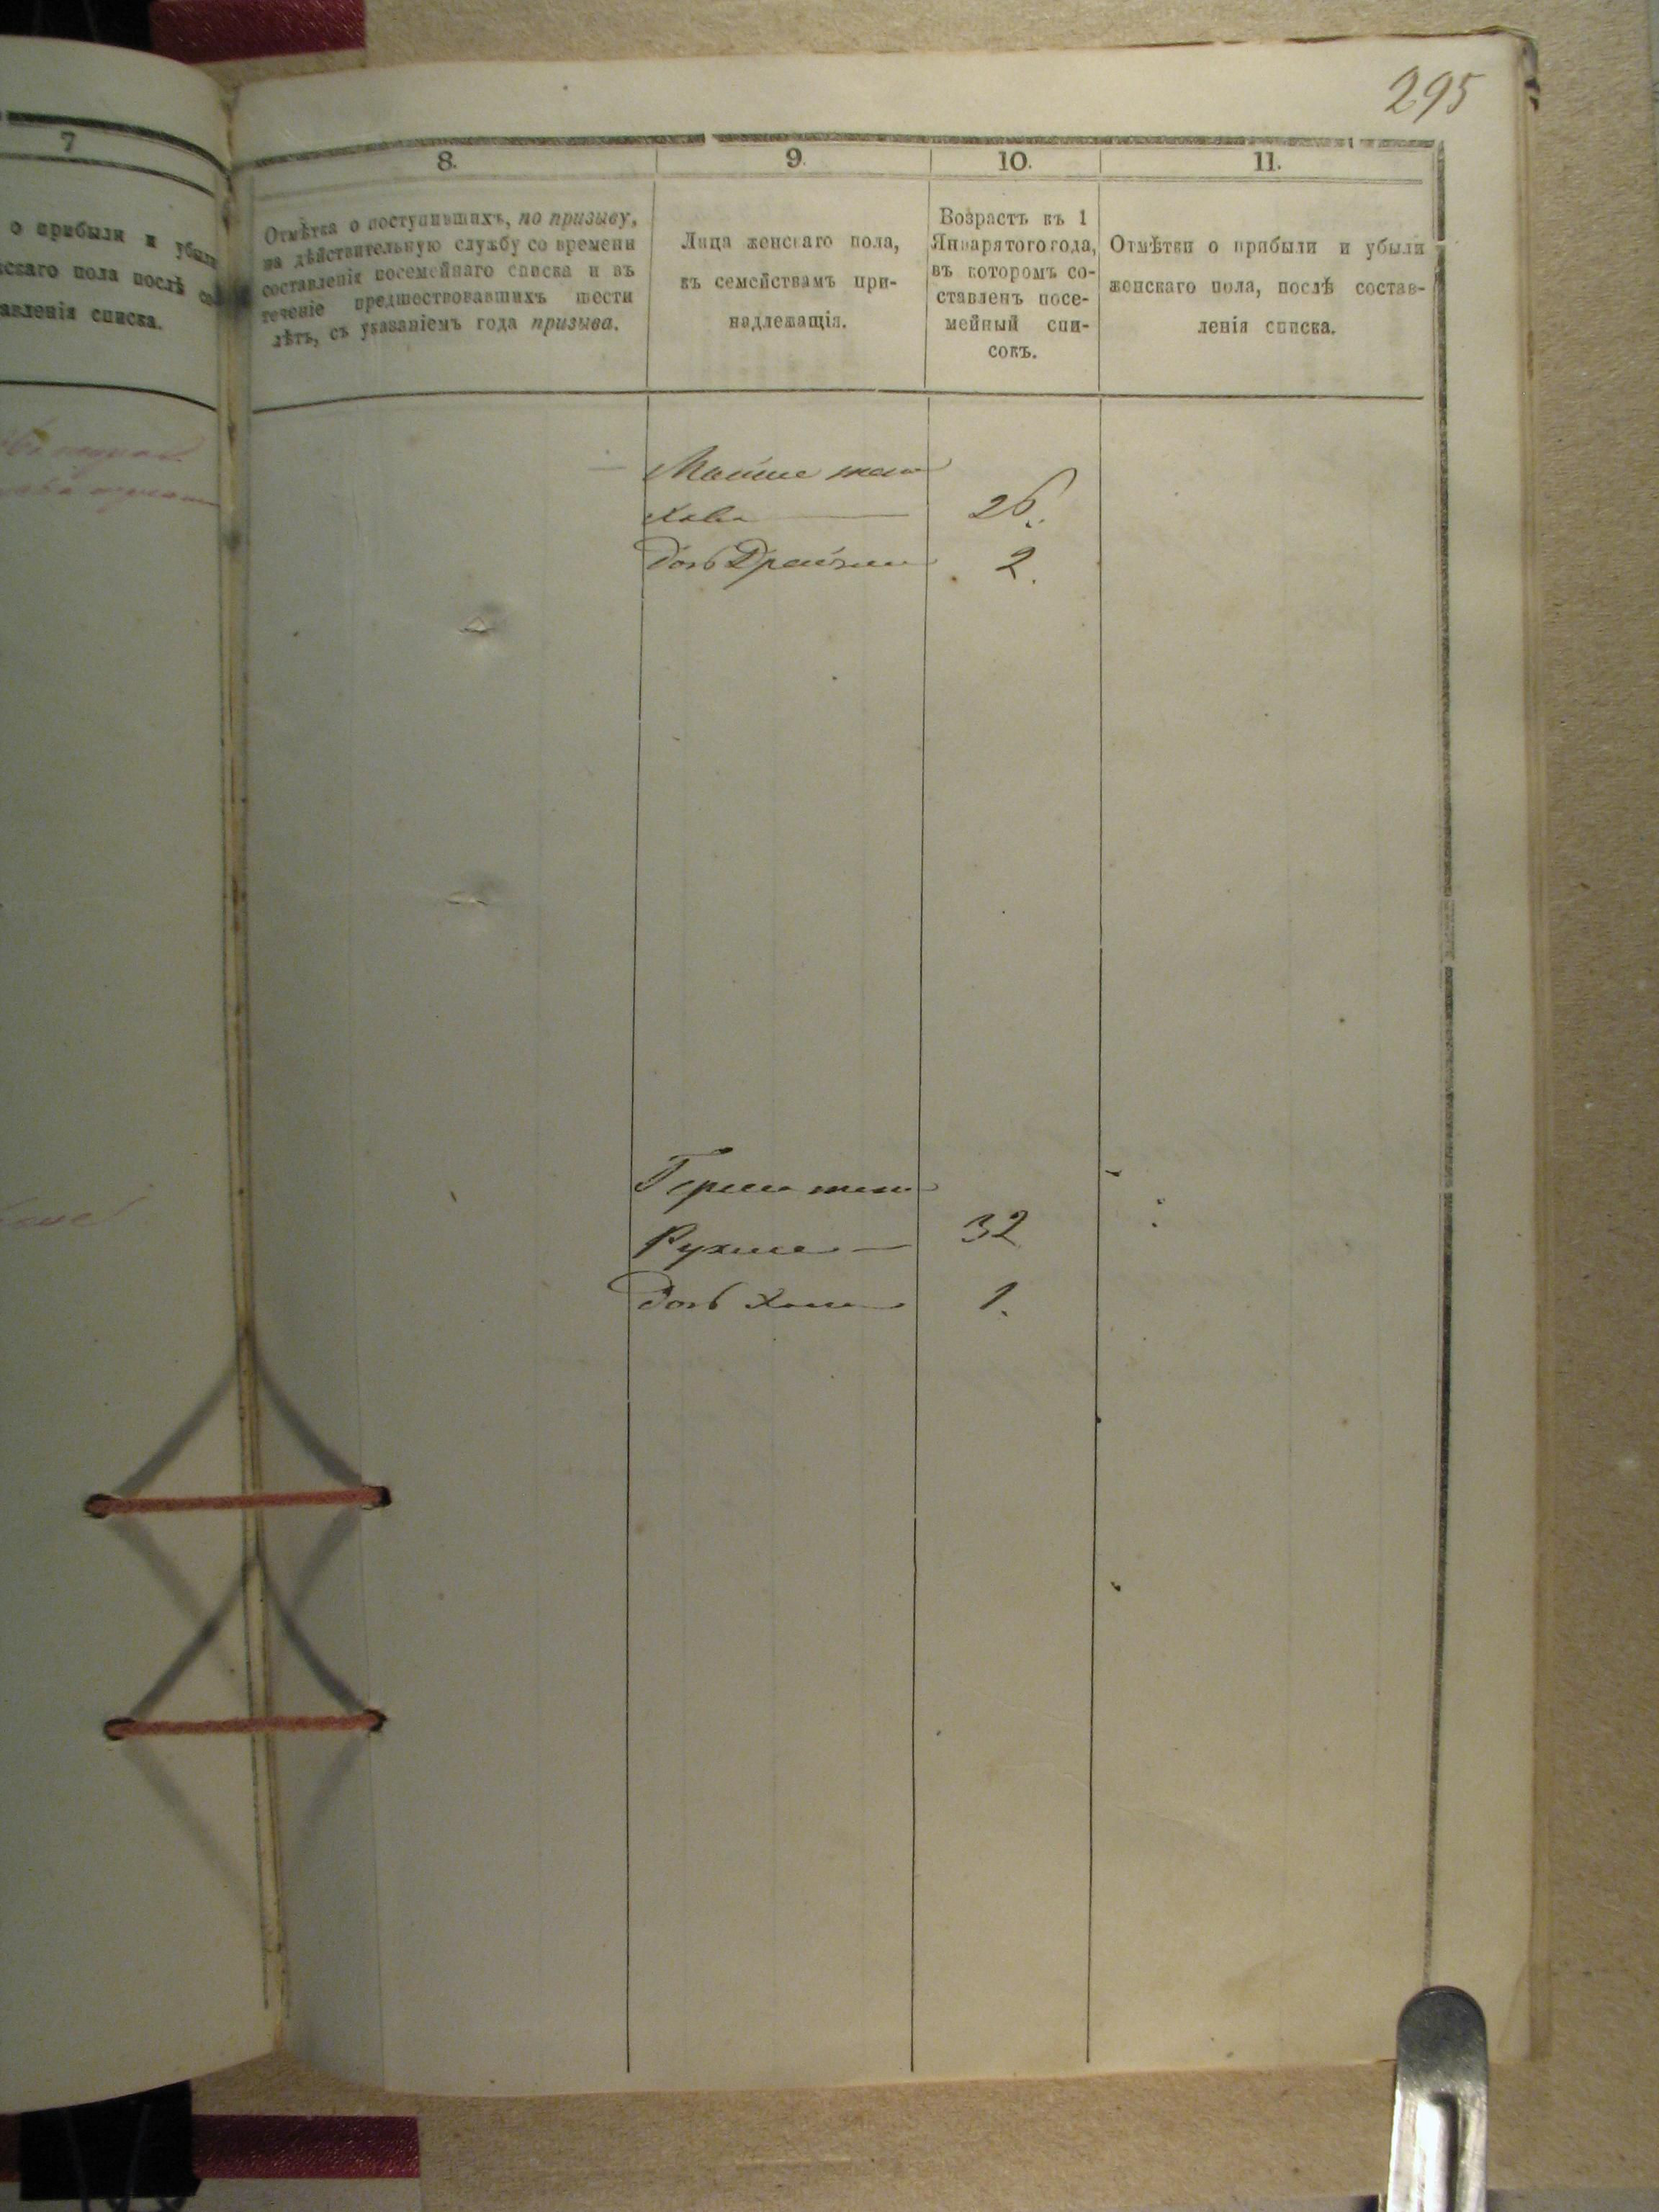 295
7
о прибыли и убыли
нскаго пола послѣ со
авленія списка.
8.
Отмѣтка о поступившихъ, по призыву,
на дѣйствительную службу со времени
составленія посемейнаго списка и въ
теченіе предшествовавшихъ шести
лѣтъ, съ указаніемъ года призыва.
9.
Лица женскаго пола,
къ семействамъ при-
надлежащія.
10.
Возрастъ къ 1
Января того года,
въ которомъ со-
ставленъ посе-
мейный спи-
сокъ.
11.
Отмѣтки о прибыли и убыли
женскаго пола, послѣ состав-
ленія списка.
жена
Хава 26.
дочь 2.
жена
32
дочь 1.